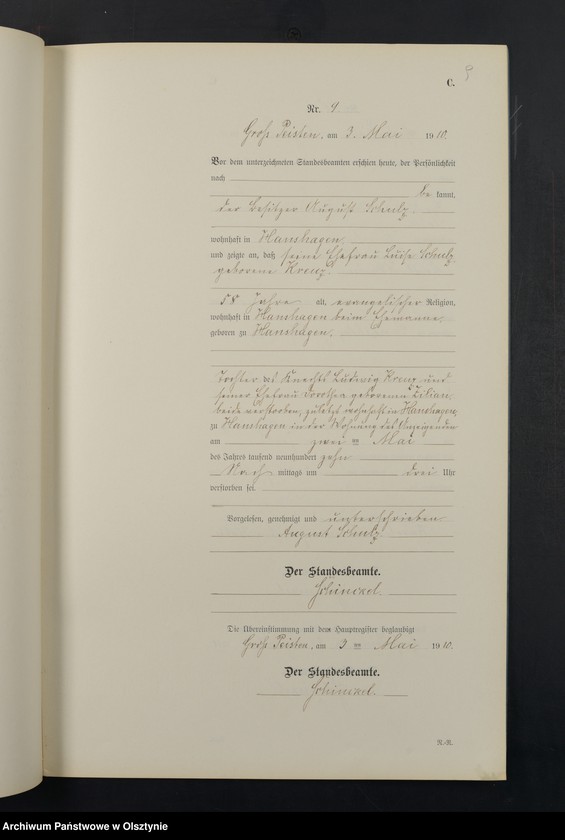 9
C.
Nr. 9
Groß Peisten, am 3. Mai 1910.
Vor dem unterzeichneten Standesbeamten erschien heute, der Persönlichkeit
nach
be kannt,
der Besitzer August Schulz
wohnhaft in Hanshagen
und zeigte an, daß seine Ehefrau Luise Schulz
geborene Kreuz
58 Jahre alt, evangelischer Religion,
wohnhaft in Hanshagen beim Ehemanne,
geboren zu Hanshagen.
Tochter des Knechts Ludwig Kreuz und
seiner Ehefrau Dorothea geborenen Zilian,
beide verstorben, zuletzt wohnhaft in Hanshagen,
zu Hanshagen in der Wohnung des Anzeigenden
am zwei ten Mai
des Jahres tausend neunhundert zehn
Nach mittags um drei Uhr
verstorben sei.
Vorgelesen, genehmigt und unterschrieben.
August Schulz
Der Standesbeamte.
Schinckel.
Die Übereinstimmung mit dem Hauptregister beglaubigt
Groß Peisten, am 3 ten Mai 1910.
Der Standesbeamte.
Schinckel.
R.-R.
Archiwum Państwowe w Olsztynie